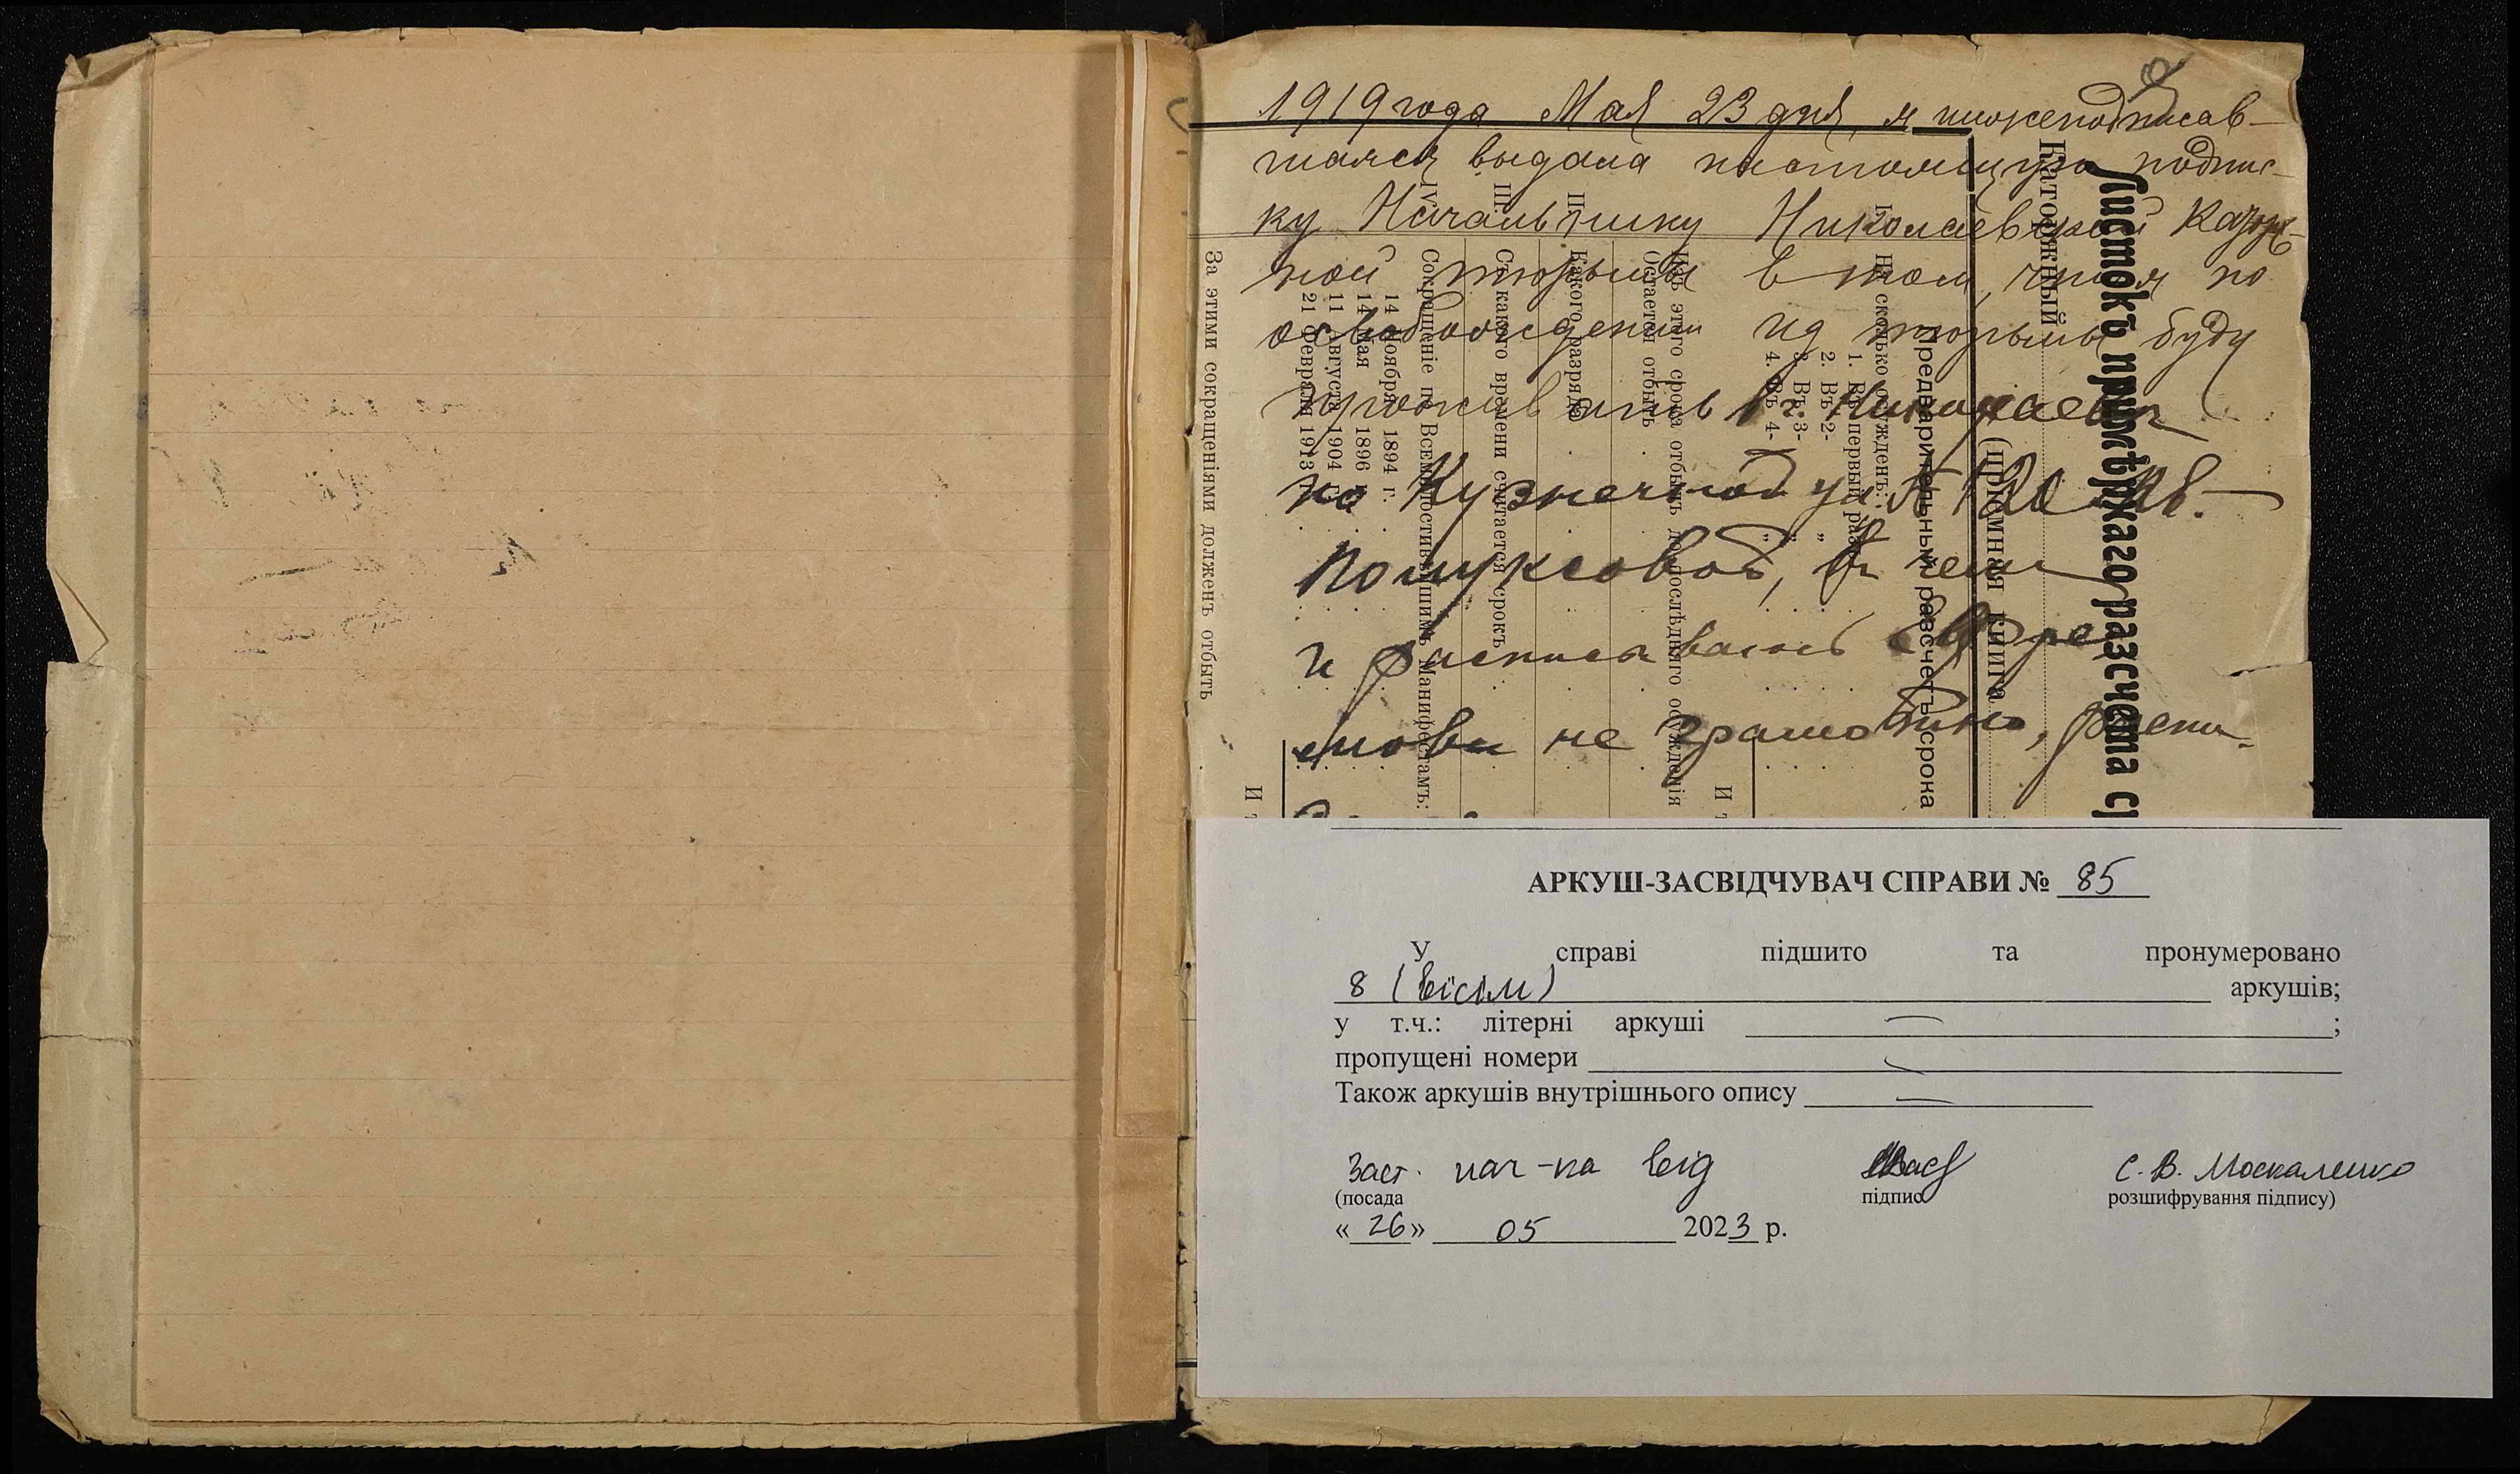 1919 года Мая 23 дня, я нижеподписав-
шаяся выдала настоящую подпис-
ку Начальнику Николаевской Каторж-
ной тюрьмы в том, что я по
освобождении из тюрьмы буду
проживать в г. Николаеве
на Кузнечной ул №
в чем
и расписываюсь
не грамотна,
Листокъ примѣрнаго разсчета
Каторжный
(приемная книга
Предварительный разсчетъ срока
На сколько осужденъ:
1. Въ первый разъ
2. Въ 2- „
3. Въ 3- „
4. Въ 4- „
Изъ этого срока отбылъ до послѣдняго осужденія
Остается отбыть
II. Какого разряда
III. Съ какого времени считается срокъ
IV. Сокращеніе по Всемилостивѣйшимъ Манифестамъ:
14 Ноября 1894 г.
14 Мая 1896 г.
11 Августа 1904 г.
21 Февраля 1913 г.
За этими сокращеніями долженъ отбыть
АРКУШ-ЗАСВІДЧУВАЧ СПРАВИ № 85
У справі підшито та пронумеровано
8 (вісім) аркушів;
у т.ч.: літерні аркуші — ;
пропущені номери —
Також аркушів внутрішнього опису —
Заст. нач-ка від С. В. Москаленко
(посада підпис розшифрування підпису)
« 26 » 05 2023 р.